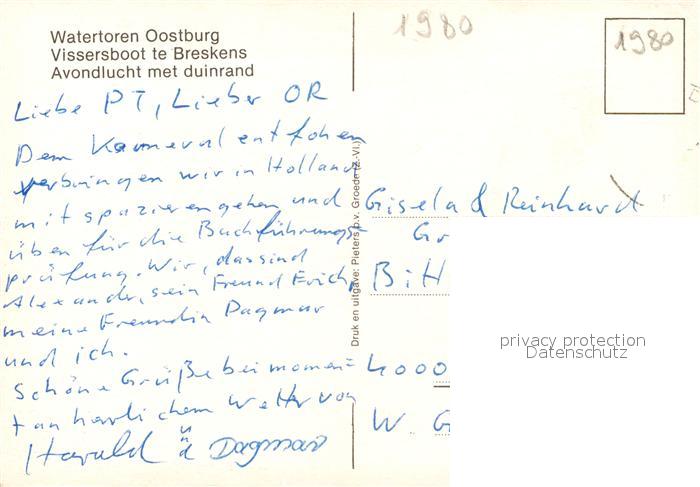 Watertoren Oostburg
Vissersboot te Breskens
Avondlucht met duinrand
1980
1980
Liebe PT, Lieber OR
Dem Karneval entflohen
verbringen wir in Holland
mit spazierengehen und
üben für die Buchführungs-
prüfung. Wir, das sind
Alexander, sein Freund Erich,
meine Freundin Dagmar
und ich.
Schöne Grüße bei momen=
tan herlichem Wetter von
Harald und Dagmar
Druk en uitgave: Pieters b.v. Groede (Z.-Vl.)
Gisela & Reinhardt
Gr
Bitt
4000
W. G
privacy protection
Datenschutz